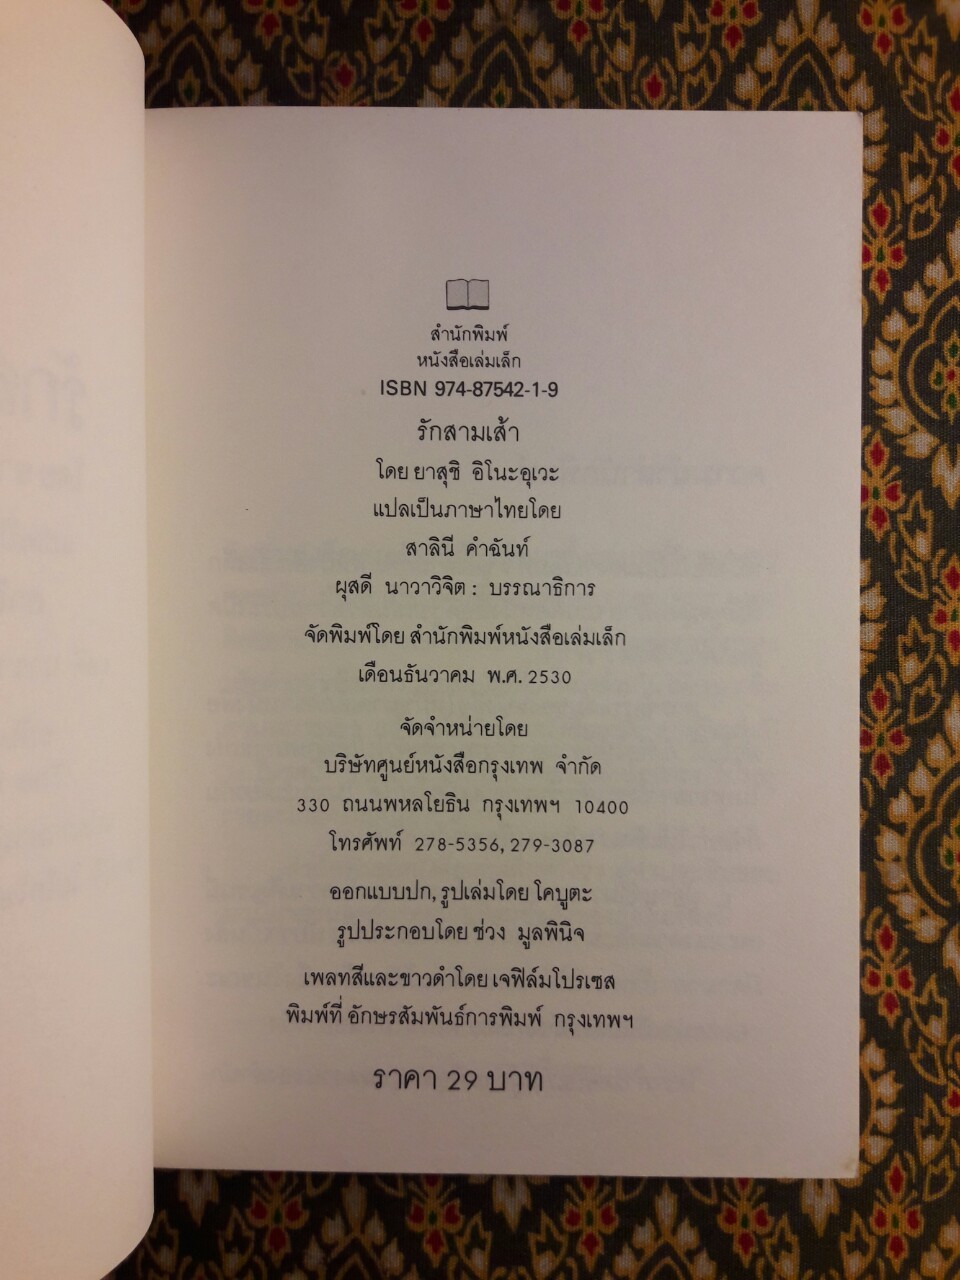 สำนักพิมพ์
หนังสือเล่มเล็ก
ISBN 974-87542-1-9
รักสามเส้า
โดย ยาสุชิ อิโนะอุเวะ
แปลเป็นภาษาไทยโดย
สาลินี คำฉันท์
ผุสดี นาวาวิจิต : บรรณาธิการ
จัดพิมพ์โดย สำนักพิมพ์หนังสือเล่มเล็ก
เดือนธันวาคม พ.ศ. 2530
จัดจำหน่ายโดย
บริษัทศูนย์หนังสือกรุงเทพ จำกัด
330 ถนนพหลโยธิน กรุงเทพฯ 10400
โทรศัพท์ 278-5356, 279-3087
ออกแบบปก, รูปเล่มโดย โคบูตะ
รูปประกอบโดย ช่วง มูลพินิจ
เพลทสีและขาวดำโดย เจฟิล์มโปรเซส
พิมพ์ที่ อักษรสัมพันธ์การพิมพ์ กรุงเทพฯ
ราคา 29 บาท